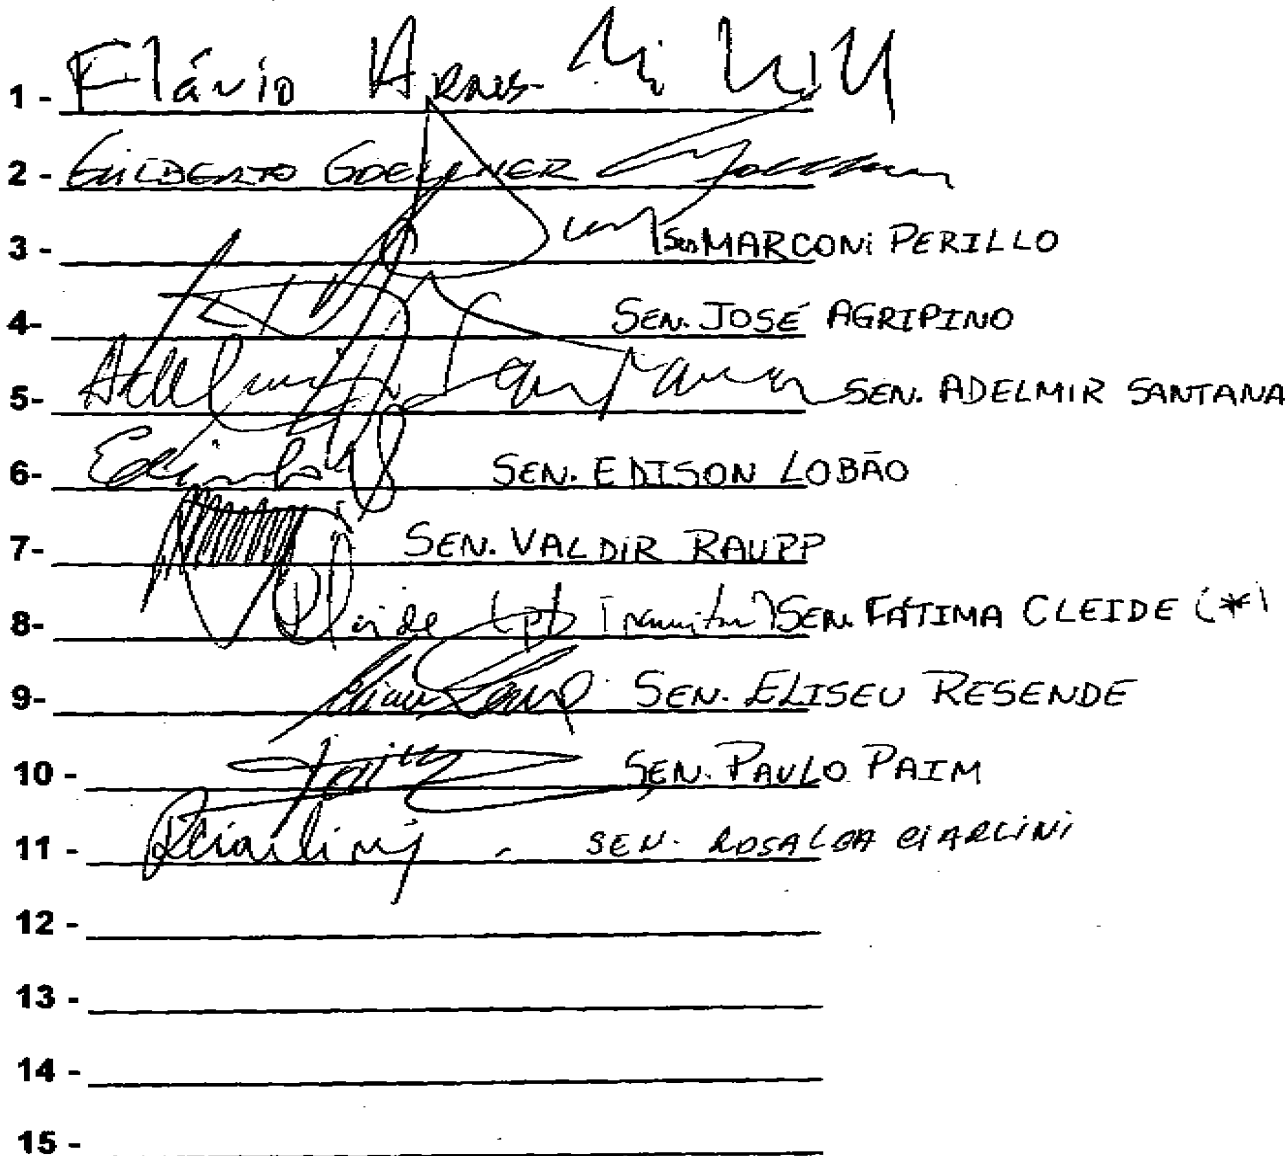 1 - Flávio Arns
2 - GILBERTO GOELLNER
3 - Sen. MARCONI PERILLO
4- SEN. JOSÉ AGRIPINO
5- Adelmir Santana SEN. ADELMIR SANTANA
6- SEN. EDISON LOBÃO
7- SEN. VALDIR RAUPP
8- SEN. FÁTIMA CLEIDE (*)
9- SEN. ELISEU RESENDE
10 - SEN. PAULO PAIM
11 - SEN. ROSALBA CIARLINI
12 -
13 -
14 -
15 -